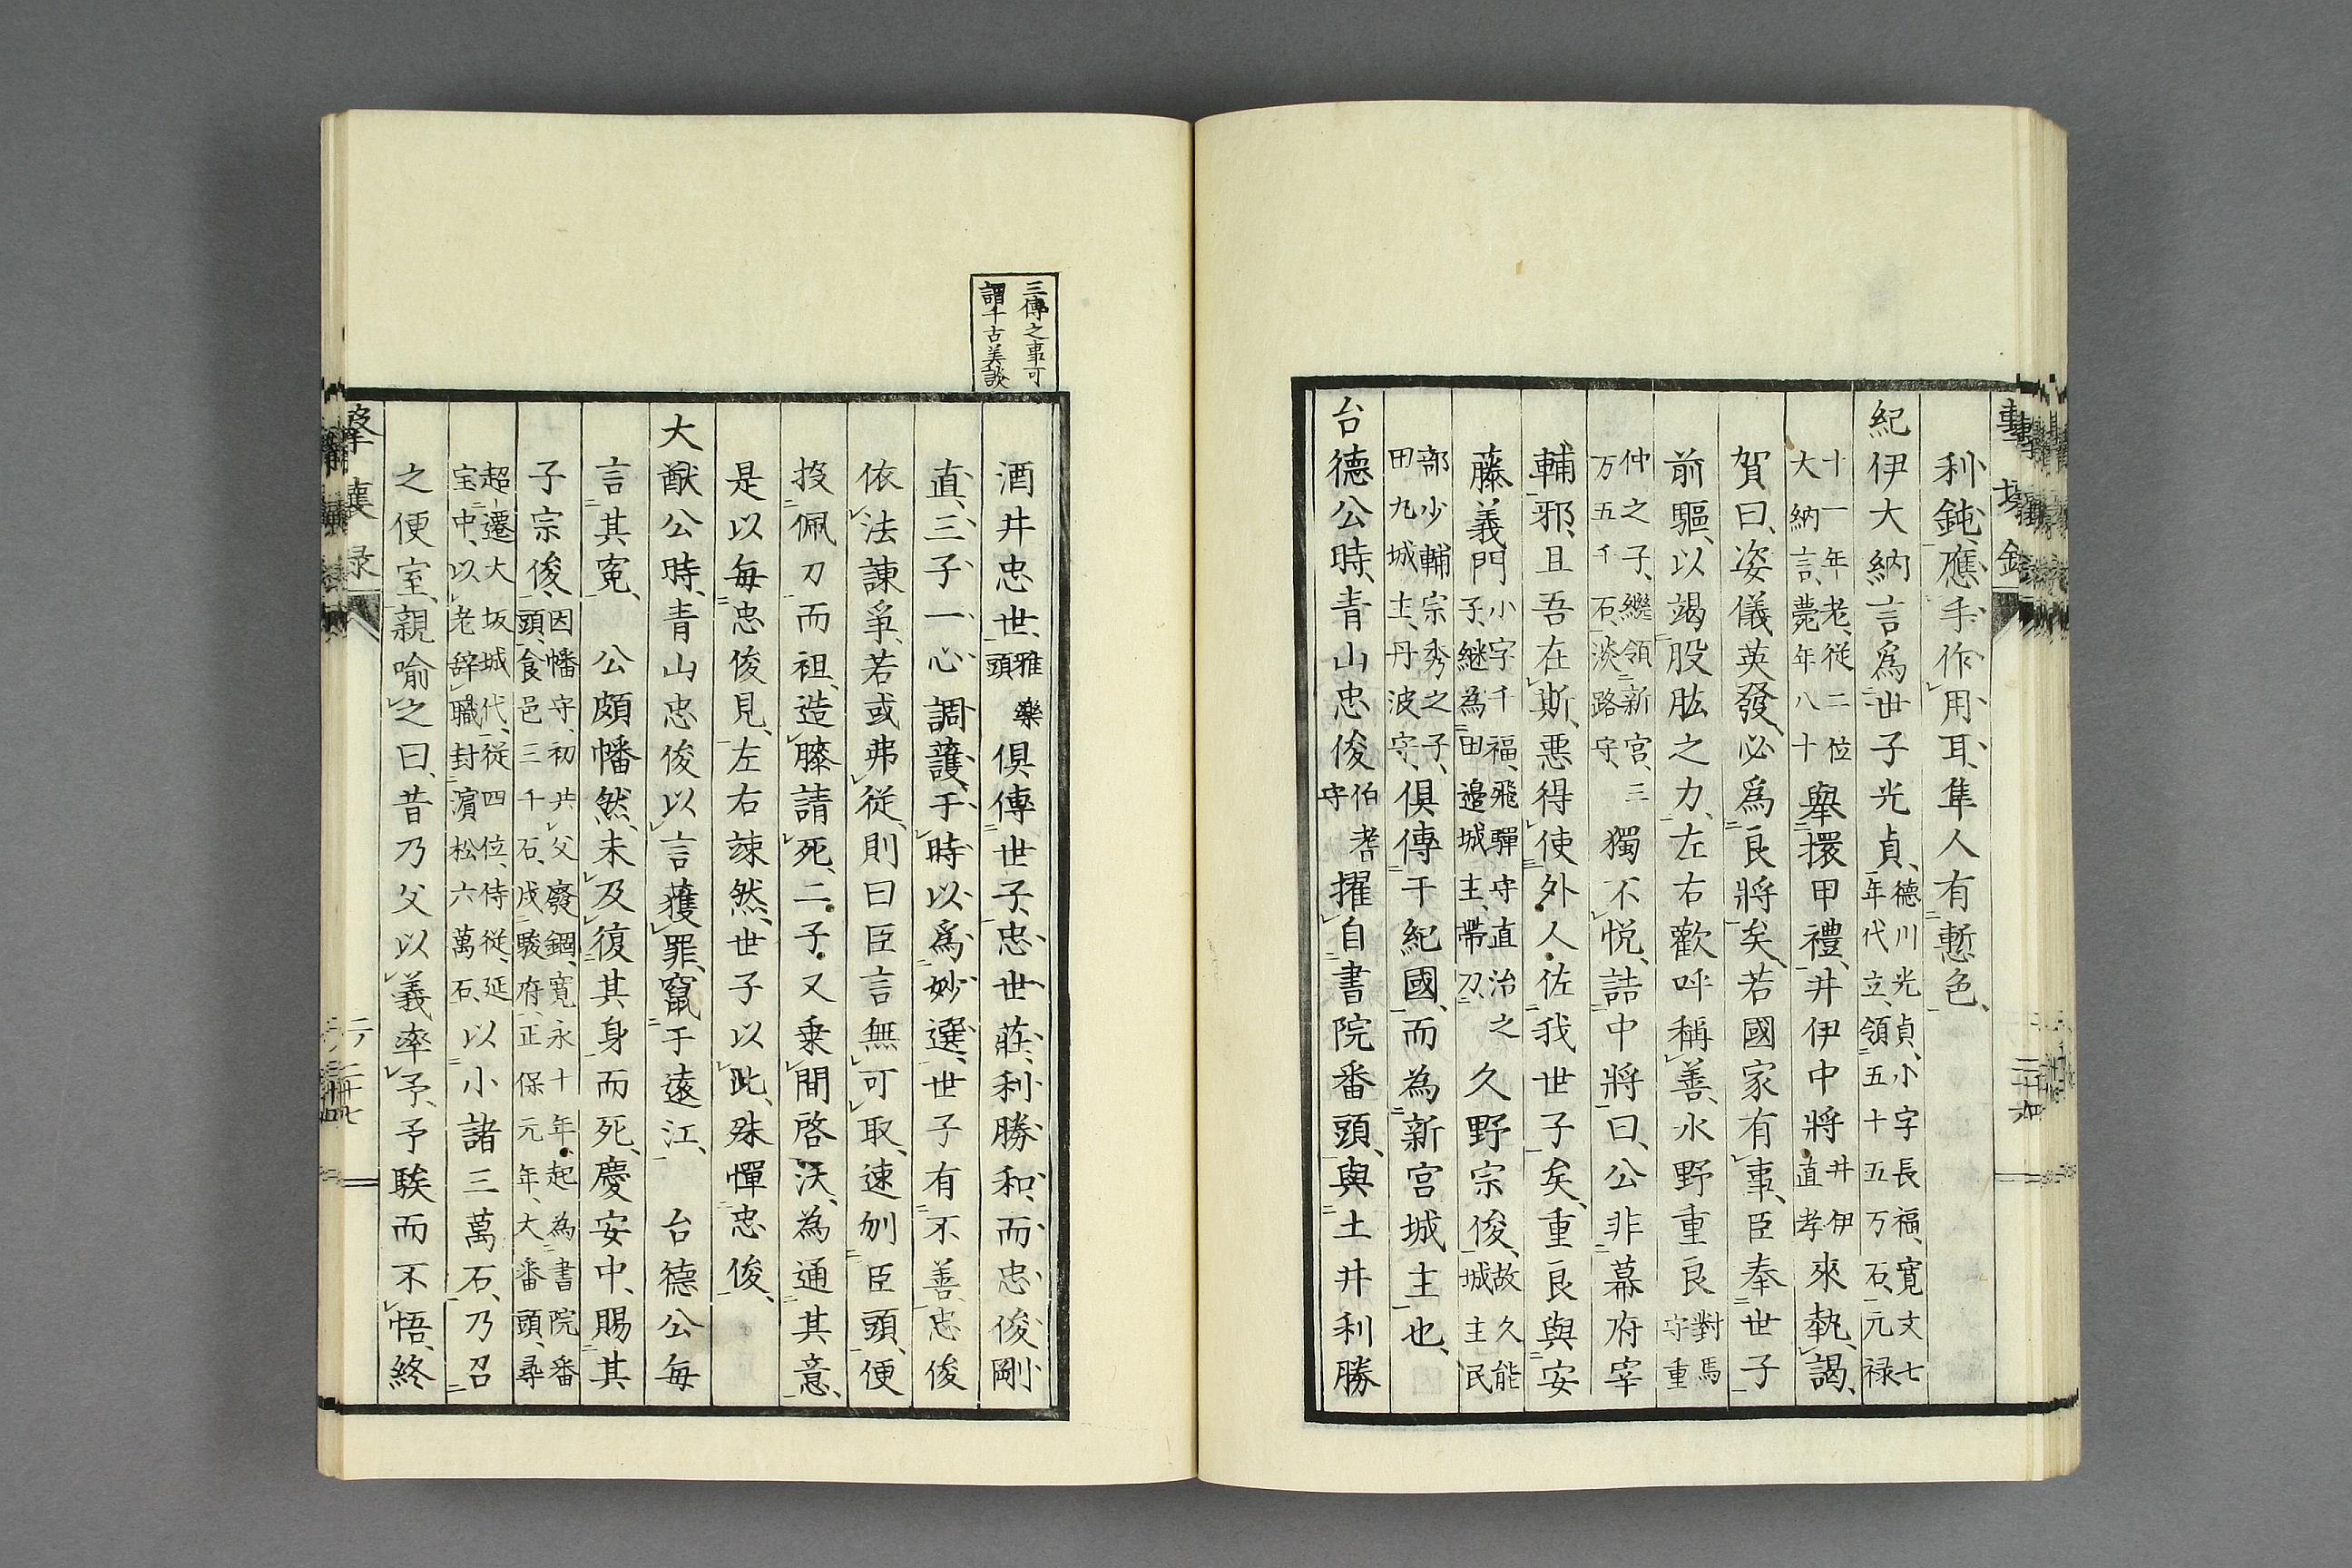 利鈍、應手作用耳、隼人有慙色、
紀伊大納言爲世子光貞、德川光貞、小字長福、寛文七
年代立、領五十五万石、元禄
十一年老、従二位
大納言、薨年八十
舉擐甲禮、井伊中將井伊
直孝
來執謁、
賀曰、姿儀英發、必爲良將矣、若國家有事、臣奉世子
前驅、以竭股肱之力、左右歡呼稱善、水野重良對馬
守重
仲之子、繼領新宮、三
万五千石、淡路守、
獨不悦、詰中將曰、公非幕府宰
輔邪、且吾在斯、悪得使外人佐我世子矣、重良與安
藤義門小字千福、飛驒守直治之
子、継為田邉城主、帶刀、
久野宗俊、故久能
城主民
部少輔宗秀之子、
田丸城主、丹波守、
俱傳于紀國、而為新宮城主也、
台德公時、青山忠俊伯耆
守
擢自書院番頭、與土井利勝
三傳之事可
謂千古美談
酒井忠世、雅樂
頭
俱傳世子、忠世莊、利勝和、而忠俊剛
直、三子一心調護、于時以爲妙選、世子有不善、忠俊
依法諫爭、若或弗從、則曰臣言無可取、速刎臣頭、便
投佩刀而袒、造膝請死、二子又乗間啓沃、為通其意、
是以毎忠俊見、左右竦然、世子以此、殊憚忠俊、
大猷公時、青山忠俊以言獲罪、竄于遠江、台德公毎
言其寃、公頗幡然、未及復其身而死、慶安中、賜其
子宗俊、因幡守、初共父廢錮、寛永十年、起為書院番
頭、食邑三千石、戍駿府、正保元年、大番頭、尋
超遷大坂城代、従四位、侍従、延
宝中、以老辞職封濵松六萬石、
以小諸三萬石、乃召
之便室、親喻之曰、昔乃父以義率予、予騃而不悟、終